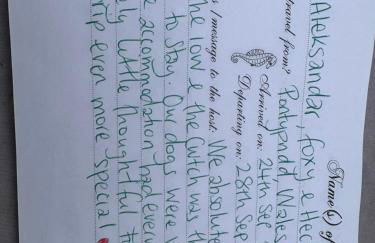 Name(s) of
Aleksandar, foxy &
travel from? Pontypridd, Wales
Arrived on: 24th Sep
Departing on: 28th Sep
/ message to the host: We absolute
the love & the Cwtch was th
to stay. Our dogs were
accommodation had every
ely little thoughtful t
rip even more special